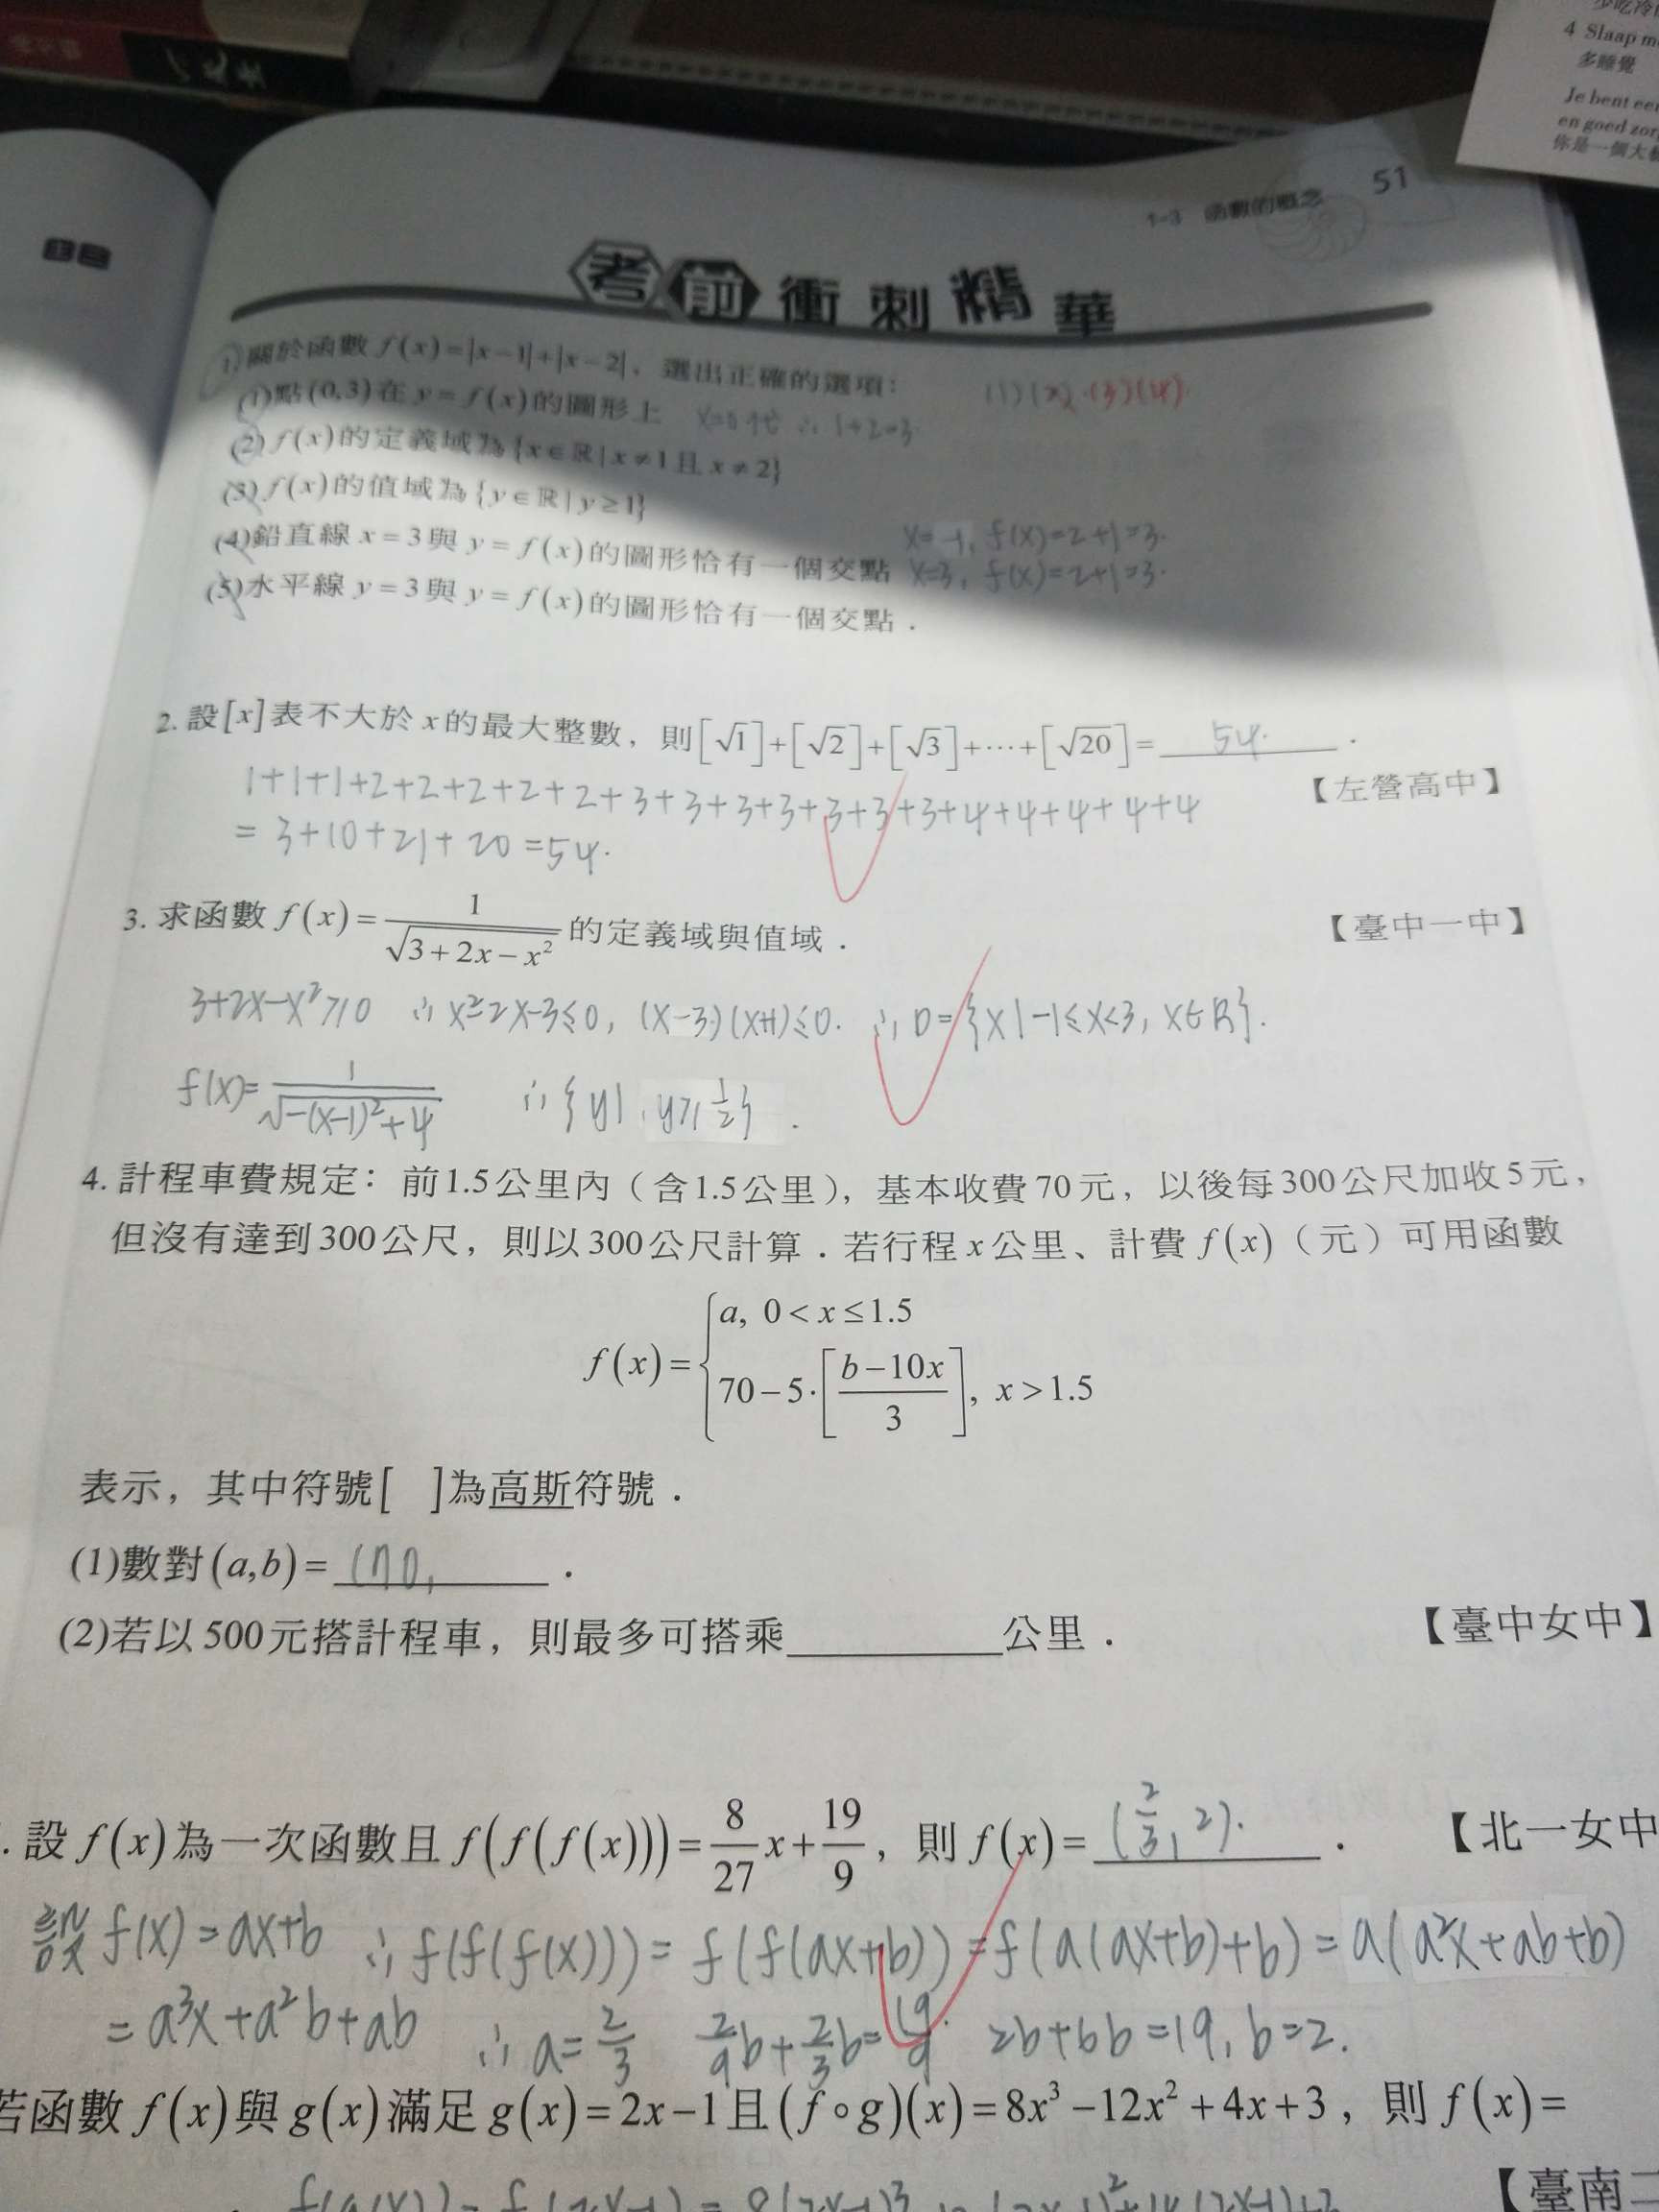 4 Slaap
多睡覺
Je bent
en goed
你是一個大
1-3 函數的概念 51
考前衝刺精華
1.關於函數 f(x)=|x-1|+|x-2|，選出正確的選項：
(1)(2)(3)(4).
(1)點(0,3)在 y=f(x)的圖形上
x=0代 ∴ 1+2=3
(2) f(x)的定義域為{x∈ℝ|x≠1且x≠2}
(3) f(x)的值域為{y∈ℝ|y≥1}
(4)鉛直線 x=3與 y=f(x)的圖形恰有一個交點
x=-1, f(x)=2+1=3.
x=3, f(x)=2+1=3.
(5)水平線 y=3與 y=f(x)的圖形恰有一個交點．
2. 設[x]表不大於x的最大整數，則[√1]+[√2]+[√3]+⋯+[√20]= 54. ．
【左營高中】
1+1+1+2+2+2+2+2+3+3+3+3+3+3+3+4+4+4+4+4
= 3+10+21+20=54.
3. 求函數 f(x)=1/√(3+2x-x²) 的定義域與值域．
【臺中一中】
3+2x-x²≥0 ∴ x²-2x-3≤0, (x-3)(x+1)≤0. ∴ D={x|-1≤x<3, x∈R}.
f(x)=1/√(-(x-1)²+4) ∴ {y|, y≥1/2}.
4. 計程車費規定：前1.5公里內（含1.5公里），基本收費70元，以後每300公尺加收5元，
但沒有達到300公尺，則以300公尺計算．若行程x公里、計費 f(x)（元）可用函數
f(x)={a, 0<x≤1.5
70-5·[(b-10x)/3], x>1.5
表示，其中符號[ ]為高斯符號．
(1)數對(a,b)= (70, ．
(2)若以500元搭計程車，則最多可搭乘____公里．
【臺中女中】
. 設 f(x)為一次函數且 f(f(f(x)))=8/27x+19/9，則 f(x)= (2/3, 2). ．
【北一女中
設 f(x)=ax+b ∴ f(f(f(x)))= f(f(ax+b))=f(a(ax+b)+b)=a(a²x+ab+b)
= a³x+a²b+ab ∴ a=2/3 2/9b+2/3b=19/9. 2b+6b=19, b=2.
若函數 f(x)與 g(x)滿足 g(x)=2x-1且(f∘g)(x)=8x³-12x²+4x+3，則 f(x)=
【臺南二